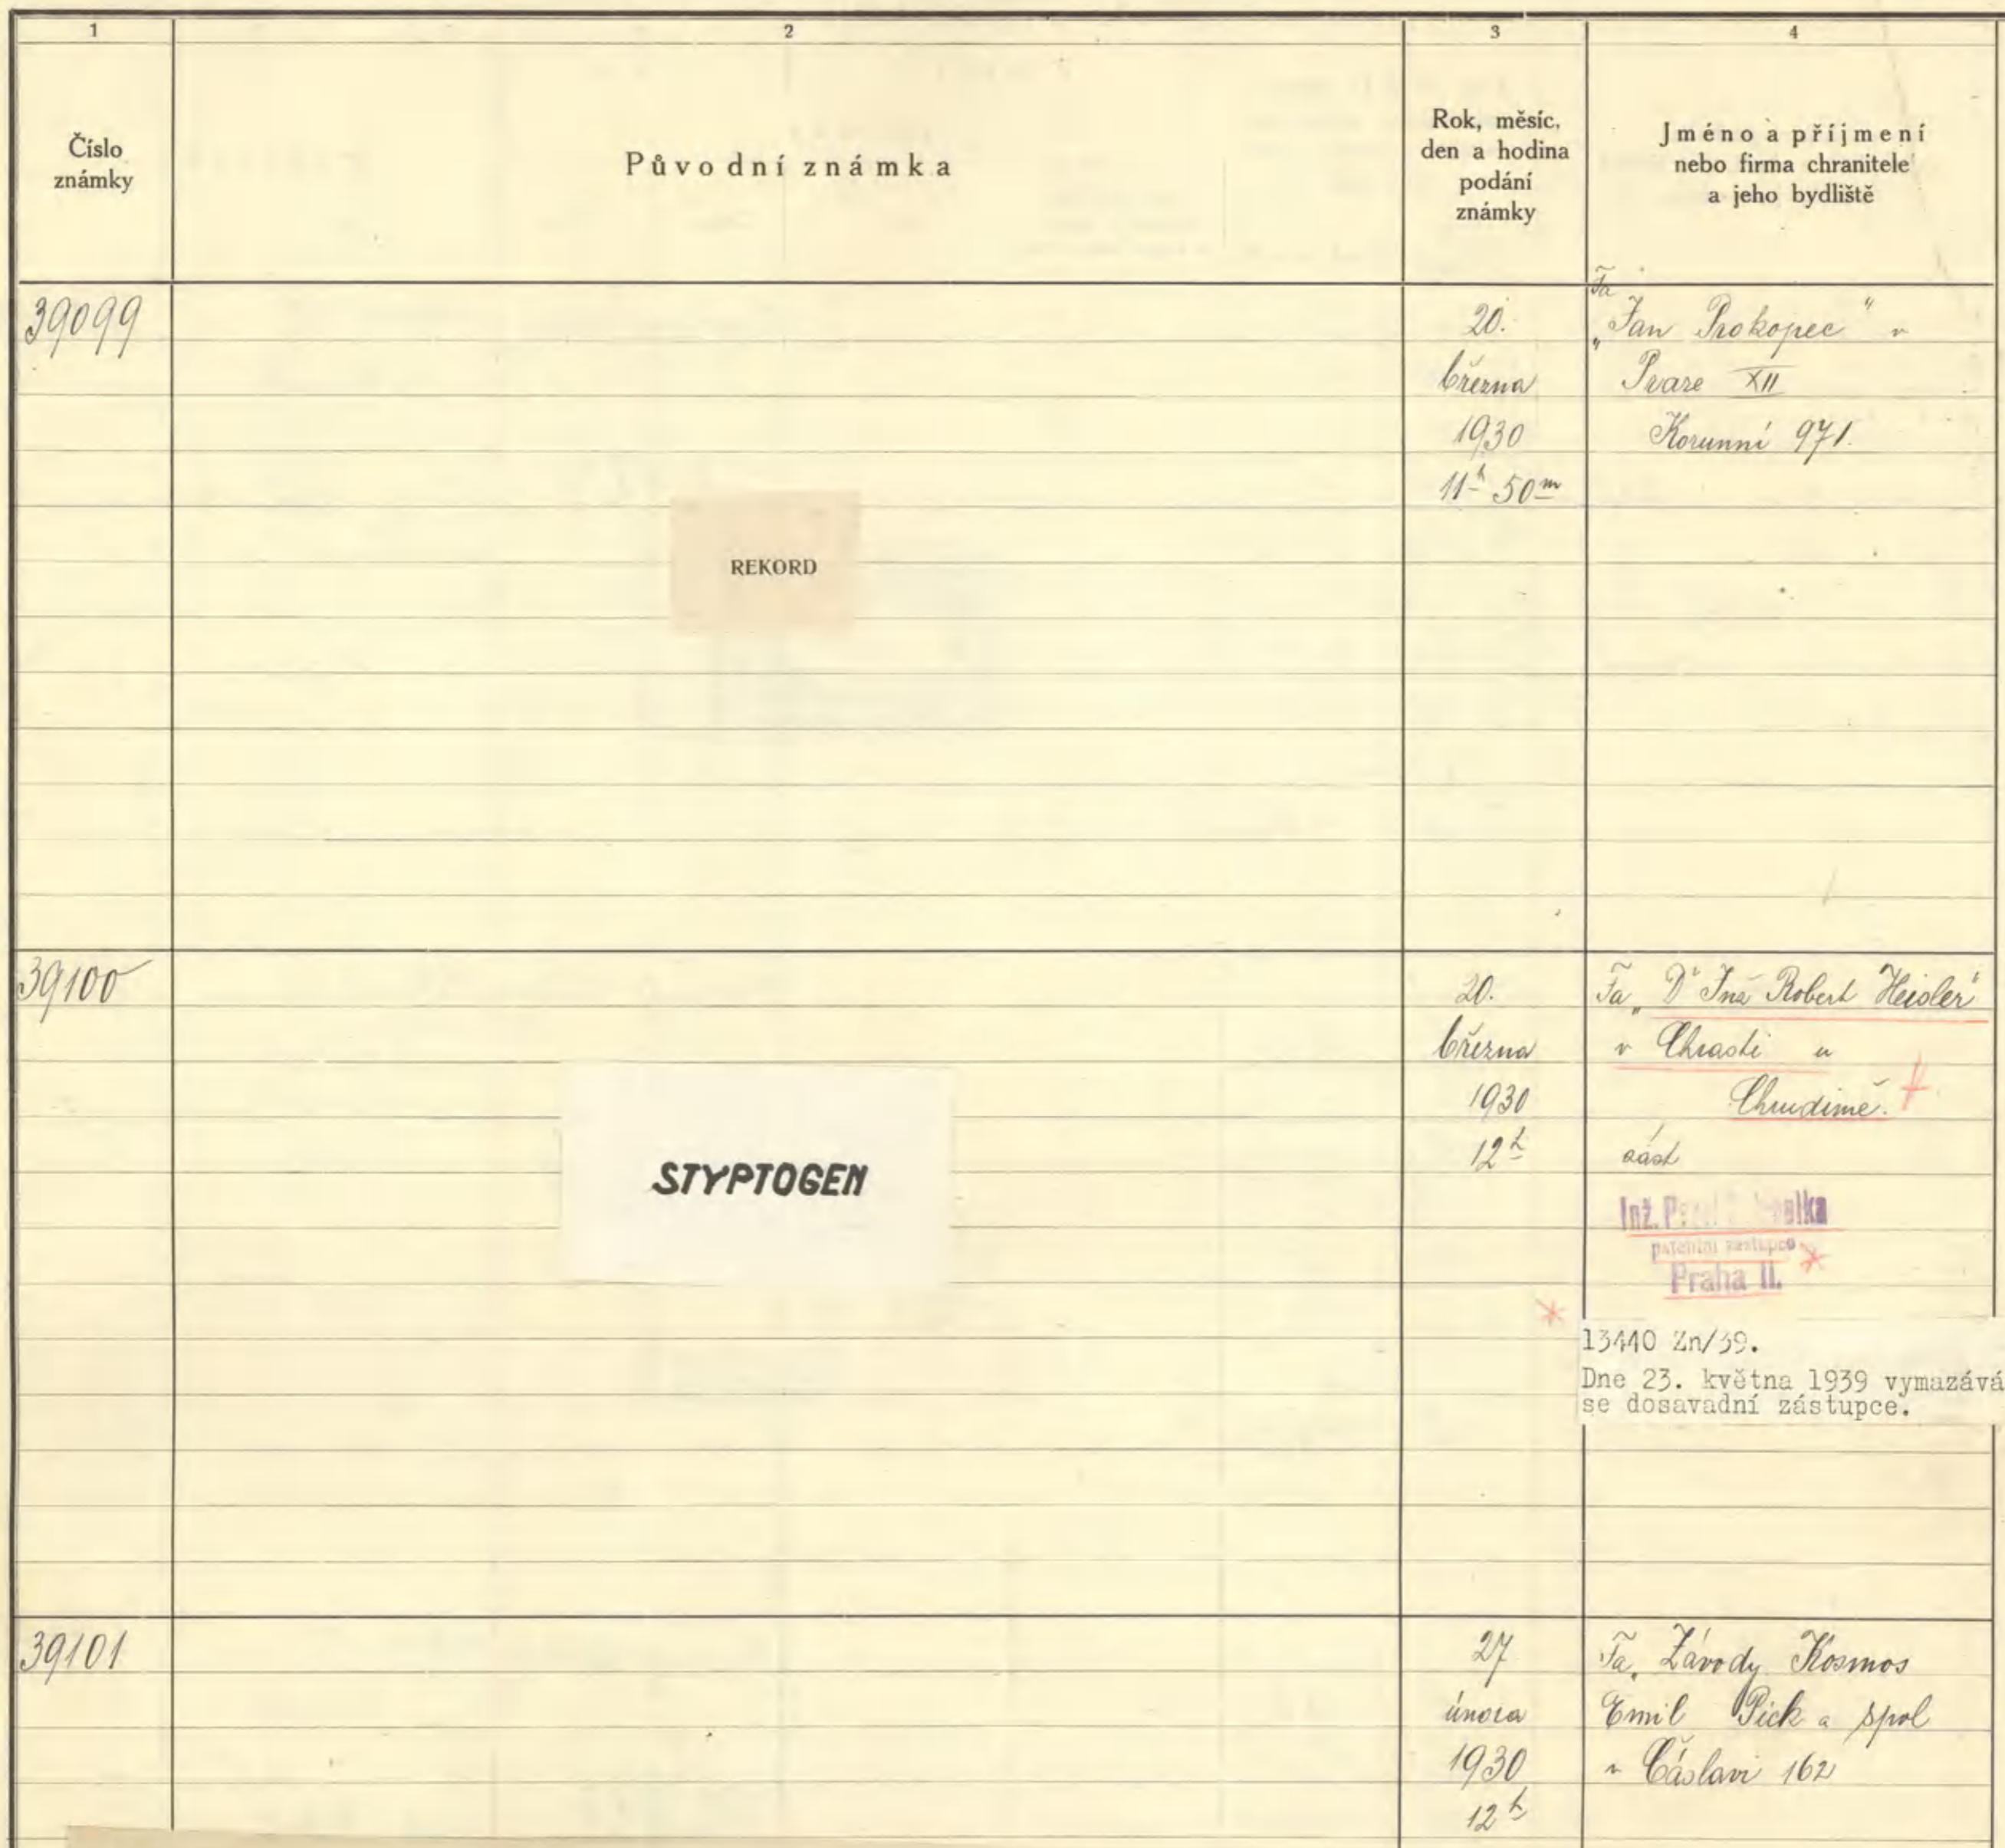 1
2
3
4
Číslo
známky
Původní známka
Rok, měsíc,
den a hodina
podání
známky
Jméno a příjmení
nebo firma chranitele
a jeho bydliště
39099
REKORD
20.
března
1930
11h 50m
Fa
„Jan Prokopec" v
Praze XII
Korunní 971.
39100
STYPTOGEN
20.
března
1930
12h
Fa „Dr Inž Robert Heisler"
v Chrasti u
Chrudimě.
zást
Inž.
patentní zástupce
Praha II.
13440 Zn/39.
Dne 23. května 1939 vymazává
se dosavadní zástupce.
39101
27
února
1930
12h
Fa „Závody Kosmos
Emil Pick a spol
v Čáslavi 162